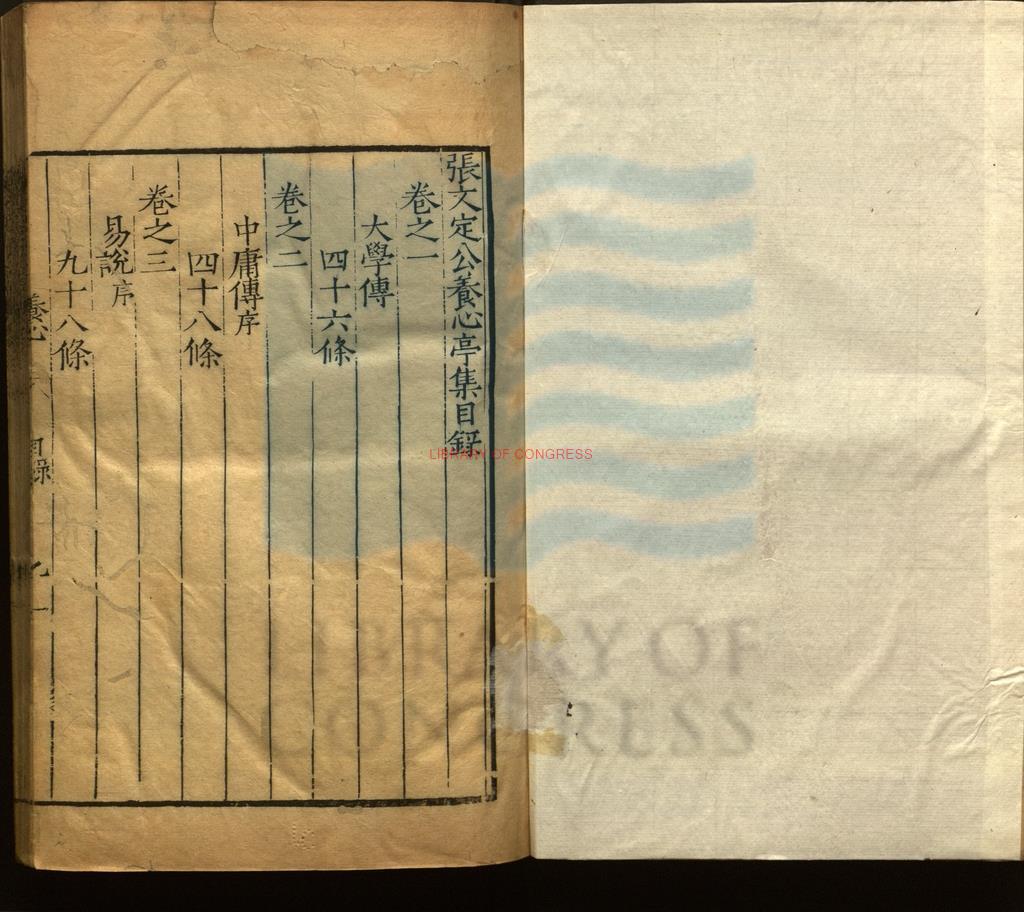 張文定公養心亭集目錄
卷之一
大學傳
四十六條
卷之二
中庸傳序
四十八條
卷之三
易說序
九十八條
養心
目錄
一
LIBRARY OF CONGRESS
LIBRARY OF
CONGRESS